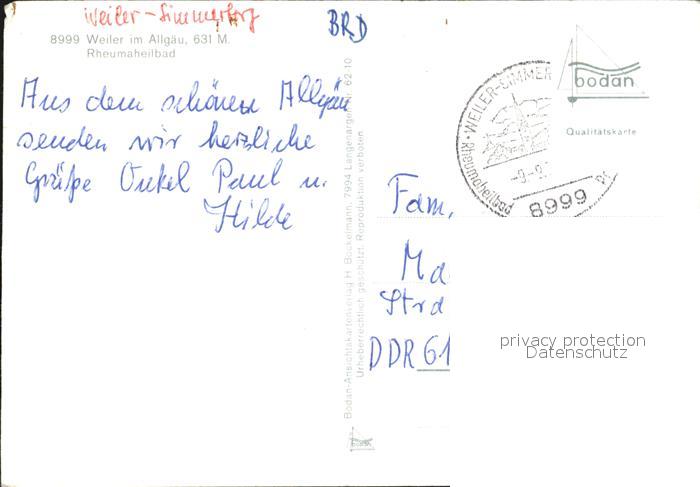 Weiler-Simmerberg
BRD
8999 Weiler im Allgäu, 631 M.
Rheumaheilbad
Aus dem schönen Allgäu
senden wir herzliche
Grüße Onkel Paul u.
Hilde
Bodan-Ansichtskartenverlag H. Bockelmann, 7994 Langenargen Nr. 62-10
Urheberrechtlich geschützt. Reproduktion verboten
WEILER-SIMMER
Rheumaheilbad
8999
bodan
Qualitätskarte
Fam.
Ma
Stra
DDR 61
privacy protection
Datenschutz